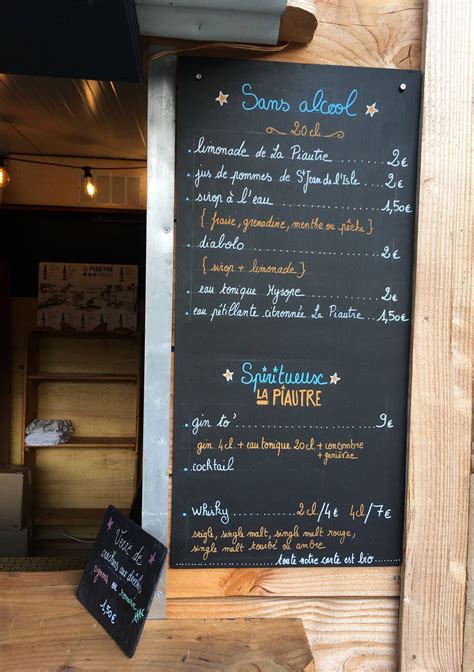 Sans alcool
20 cl
. limonade de La Piautre ........... 2€
. jus de pommes de St Jean de l'Isle ... 2€
. sirop à l'eau ........... 1,50€
{ fraise, grenadine, menthe ou pêche }
. diabolo ........... 2€
{ sirop + limonade }
. eau tonique Mysope ........... 2€
. eau pétillante citronnée La Piautre .... 1,50€
Spiritueux
LA PIAUTRE
. gin to' ........... 9€
gin 4cl + eau tonique 20cl + concombre
+ genièvre
. cocktail
. whisky ........... 2cl/4€ 4cl/7€
seigle, single malt, single malt rouge,
single malt tourbé ou ambre
...toute notre carte est bio...
LA PIAUTRE
Verre de
1,50€